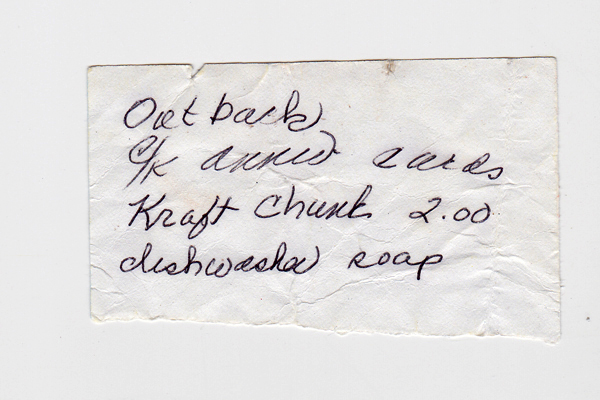 Outback
c/k anniv cards
Kraft Chunk 2.00
dishwasher soap